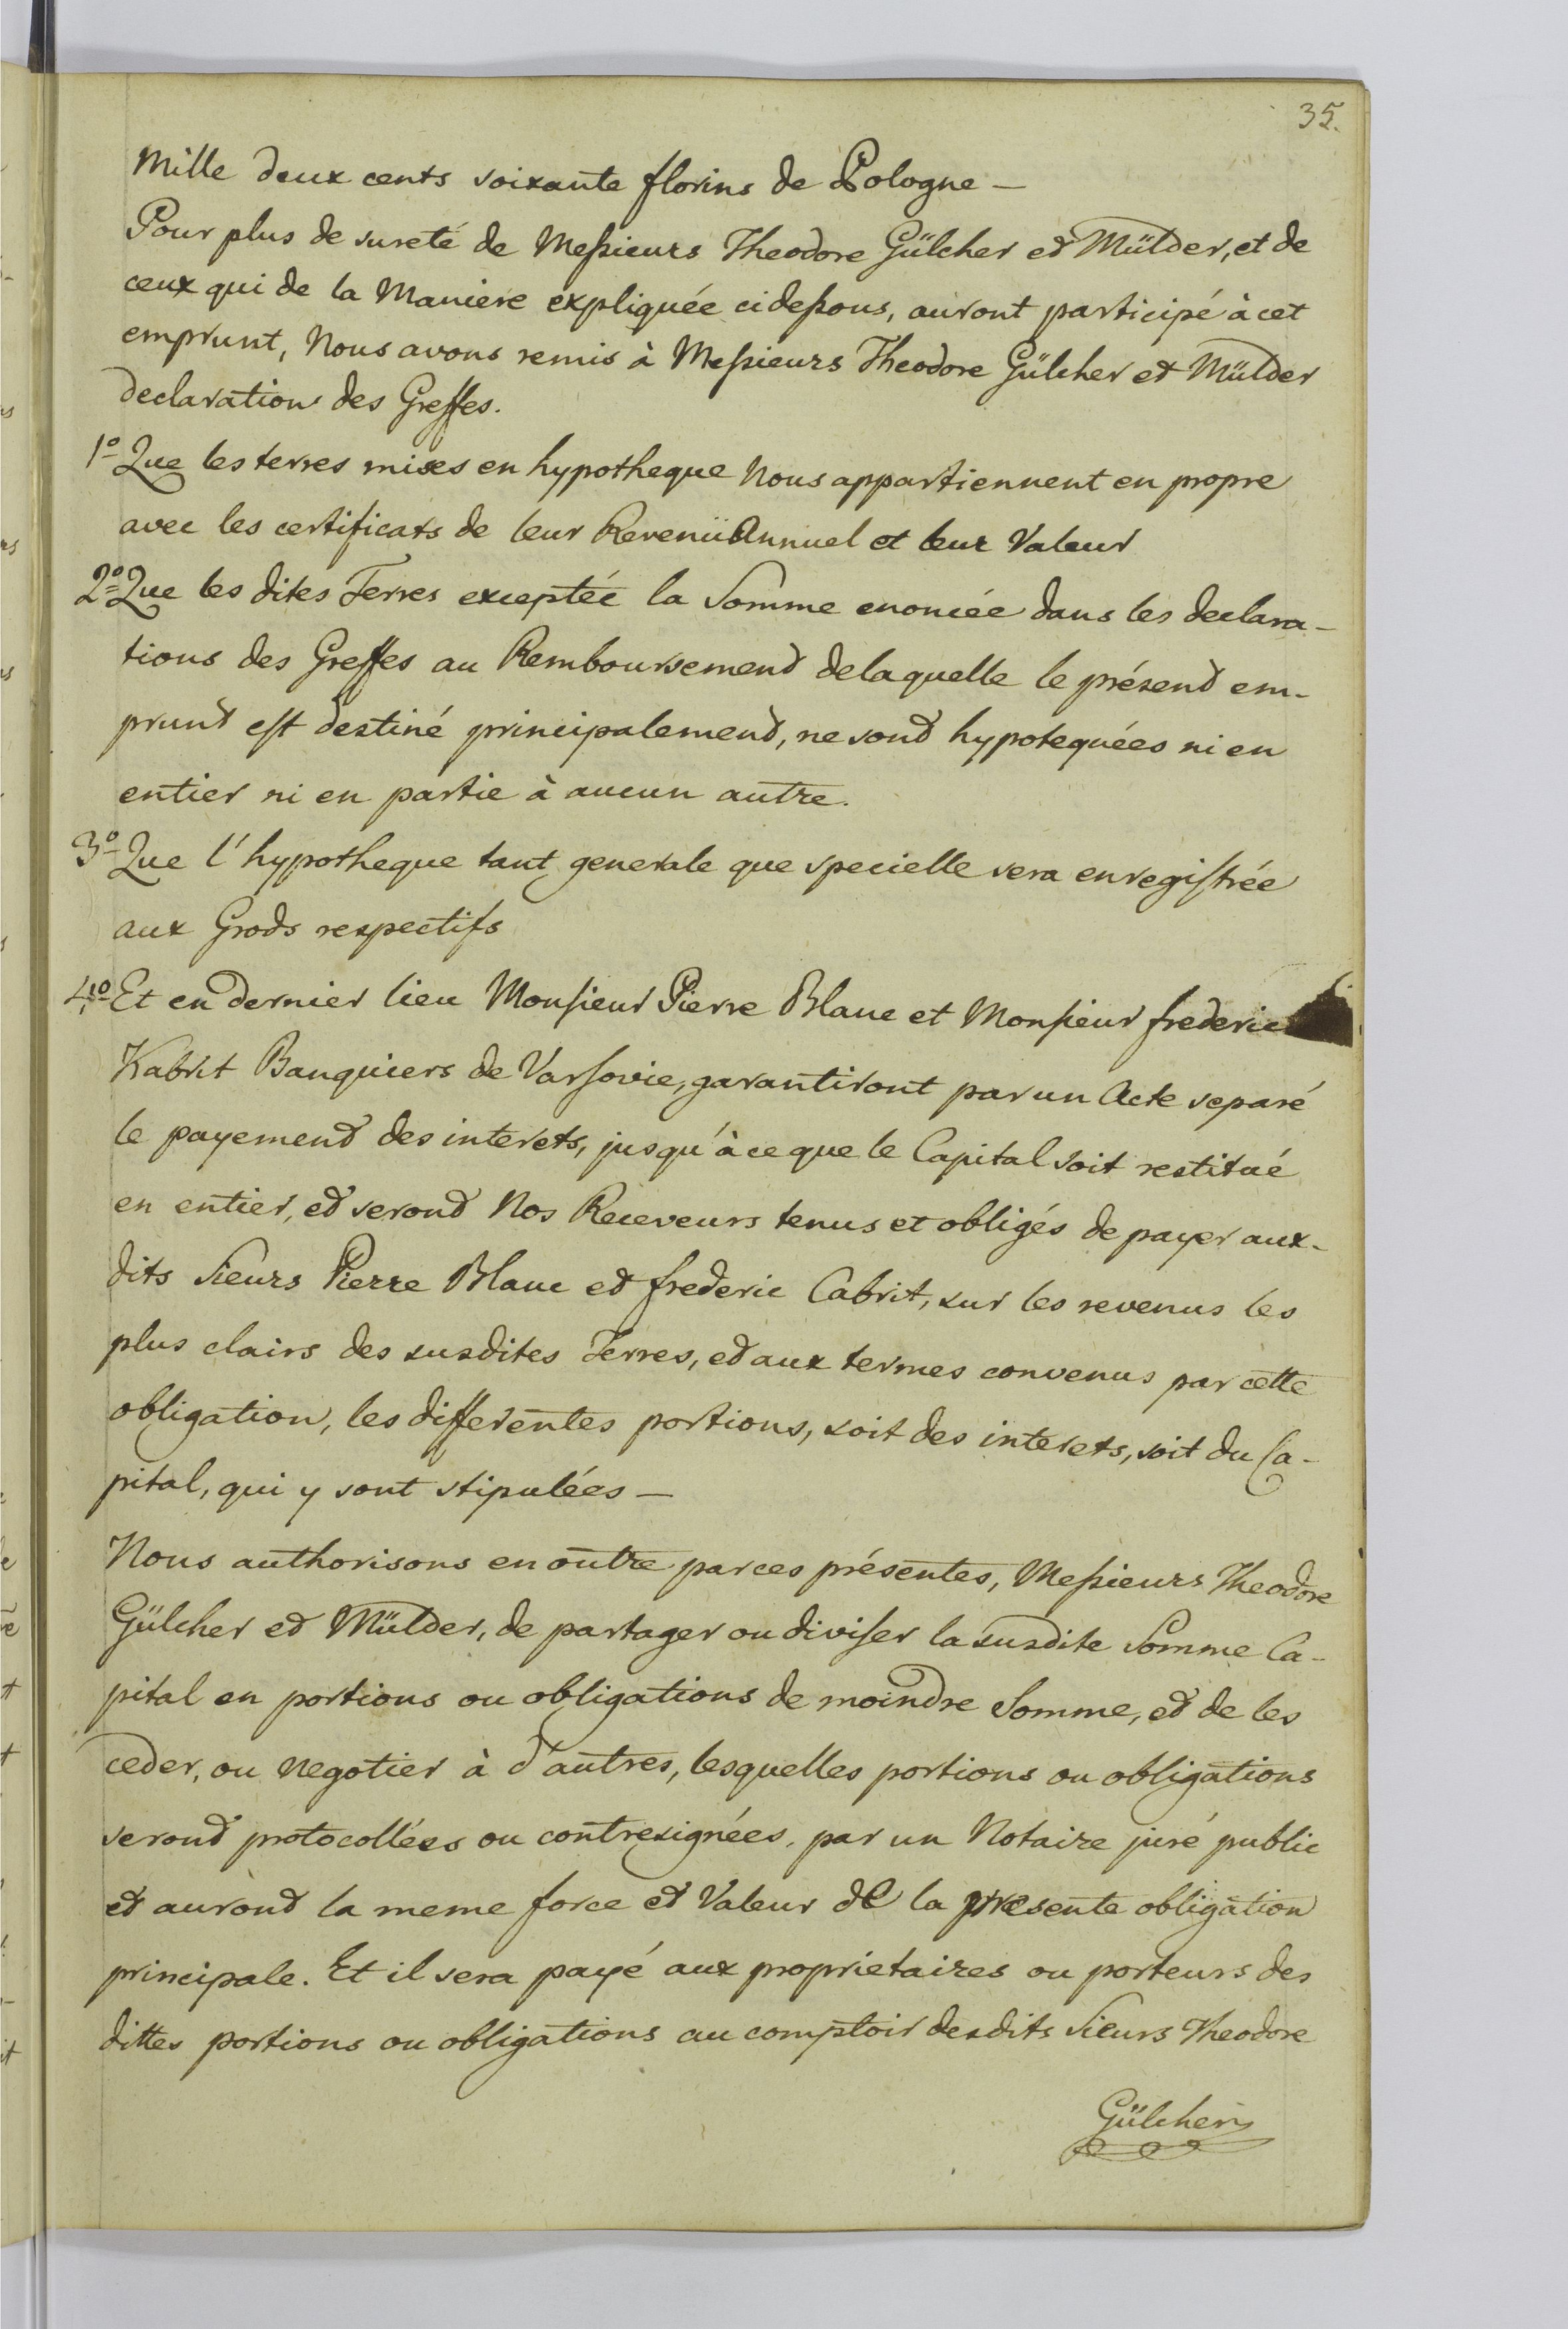 35.
Mille deux cents soixante florins de Pologne —
Pour plus de sureté de Messieurs Theodore Gülcher et Mülder, et de
ceux qui de la Maniere expliquée cidessous, auront participé à cet
emprunt, Nous avons remis à Messieurs Theodore Gülcher et Mülder
declaration des Greffes.
1o Que les terres mises en hypotheque Nous appartiennent en propre
avec les certificats de leur Revenü Annuel et leur Valeur
2o Que les dites Terres exceptée la Somme enoncée dans les declara-
tions des Greffes au Remboursement delaquelle le présent em-
prunt est destiné principalement, ne sont hypotequées ni en
entier ni en partie à aucun autre.
3o Que l'hypotheque tant generale que specielle sera enregistrée
aux Grods respectifs
4o Et en dernier lieu Monsieur Pierre Blanc et Monsieur frederic
Kabrit Banquiers de Varsovie, garantiront par un Acte separé
le payement des interets, jusqu'à ce que le Capital soit restitué
en entier, et seront Nos Receveurs tenus et obligés de payer aux-
dits Sieurs Pierre Blanc et frederic Cabrit, sur les revenus les
plus clairs des susdites Terres, et aux termes convenus par cette
obligation, les differentes portions, soit des interets, soit du Ca-
pital, qui y sont stipulées —
Nous authorisons en outre par ces présentes, Messieurs Theodore
Gülcher et Mülder, de partager ou diviser la susdite Somme Ca-
pital en portions ou obligations de moindre Somme, et de les
ceder, ou negotier à d'autres, lesquelles portions ou obligations
seront protocollées ou contresignées, par un Notaire juré public
et auront la meme force et Valeur de la presente obligation
principale. Et il sera payé aux proprietaires ou porteurs des
dittes portions ou obligations au comptoir desdits Sieurs Theodore
Gülcher